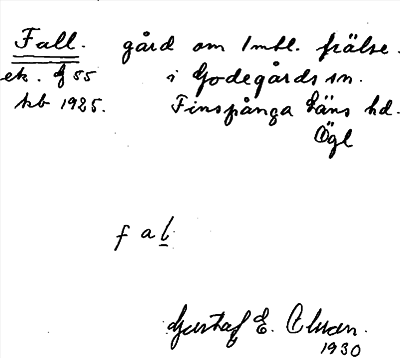 Fall. gård om 1 mtl. frälse.
ek. f 55 i Godegårds sn.
kb 1925. Finspånga läns hd.
Ögl
fal
Gustaf E.
1930